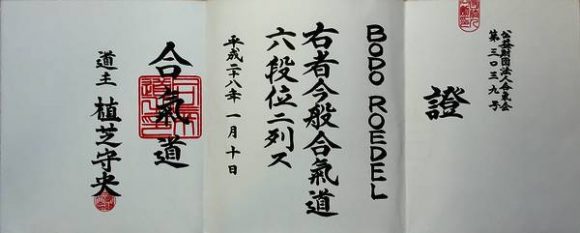 公益財団法人合気会
第三〇三九号
證
BODO ROEDEL
右者今般合氣道
六段位ニ列ス
平成二十八年一月十日
合氣道
道主 植芝守央